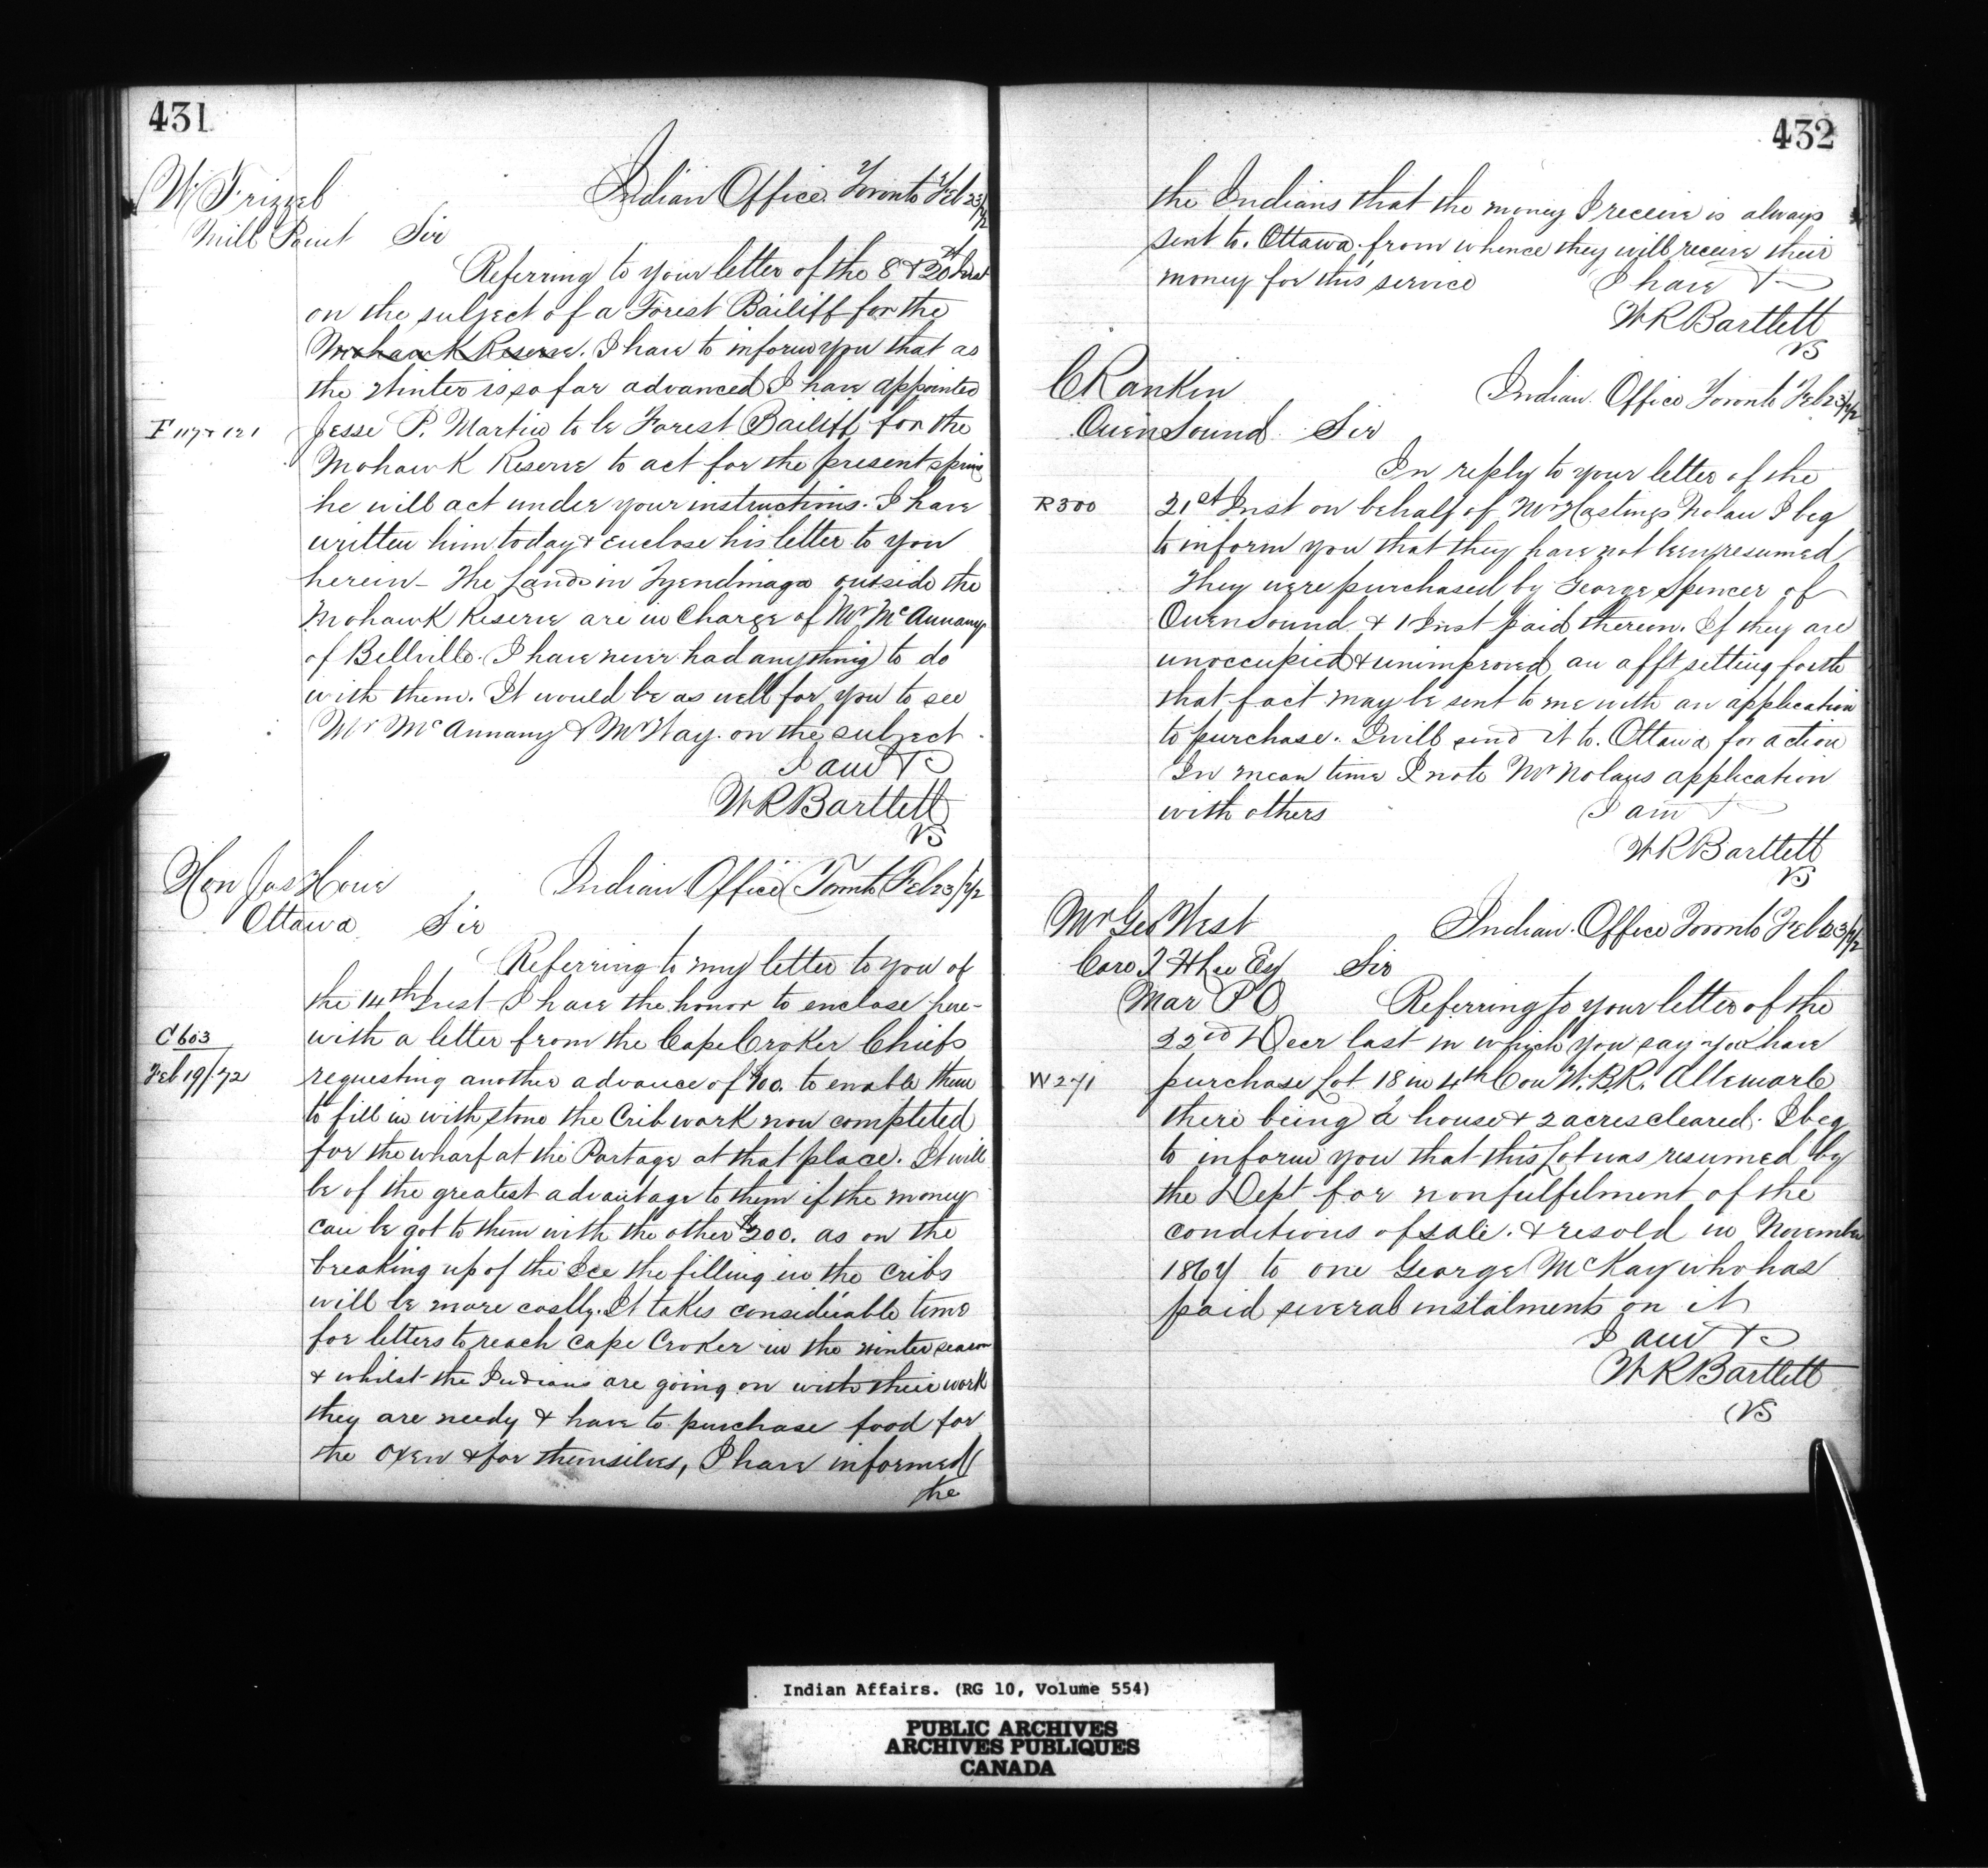 431
W Frizzeb Indian Office Toronto Feb 23/72
Mill Point Sir
Referring to your letter of the 8 & 20th Inst
on the subject of a Forest Bailiff for the
Mohawk Reserve. I have to inform you that as
the Winter is so far advanced I have appointed
F 117 & 121 Jesse P. Martin to be Forest Bailiff for the
Mohawk Reserve to act for the present spring
he will act under your instructions. I have
written him today & enclose his letter to you
herein - The Lands in Tyendinaga outside the
Mohawk Reserve are in Charge of Mr McAnnany
of Bellville. I have never had anything to do
with them. It would be as well for you to see
Mr McAnnany & Mr Way. on the subject
I am &c
W R Bartlett
VS
Hon Jos Howe Indian Office Toronto Feb 23/72
Ottawa Sir
Referring to my letter to you of
the 14th Inst I have the honor to enclose here-
C 603 with a letter from the Cape Croker Chiefs
Feb 19/72 requesting another advance of $100. to enable them
to fill in with stone the Crib work now completed
for the wharf at the Portage at that place. It will
be of the greatest advantage to them if the money
can be got to them with the other $200. as on the
breaking up of the Ice the filling in the cribs
will be more costly. It takes considerable time
for letters to reach Cape Croker in the winter season
& whilst the Indians are going on with their work
they are needy & have to purchase food for
the oxen & for themselves, I have informed
the
432
the Indians that the money I receive is always
sent to. Ottawa. from whence they will receive their
money for this service I have &
W R Bartlett
VS
C Rankin Indian Office Toronto Feb 23/72
Owen Sound Sir
In reply to your letter of the
R 300 21st Inst on behalf of Mr Hastings Nolan I beg
to inform you that they have not been resumed
They were purchased by George Spencer of
Owen Sound & 1 Inst paid thereon. If they are
unoccupied & unimproved an afft setting forth
that fact may be sent to me with an application
to purchase. I will send it to. Ottawa for action
In mean time I note Mr Nolans application
with others I am &
W R Bartlett
VS
Mr Geo West Indian Office Toronto Feb 23/72
Care T H Lee Esq Sir
Mar P O Referring to your letter of the
22nd Decr last in which you say you have
W 271 purchase Lot 18 in 4th Con W.B.R. Albemarle
there being a house & 2 acres cleared. I beg
to inform you that this Lot was resumed by
the Dept for nonfulfilment of the
conditions of sale. & resold in November
1867 to one George McKay who has
paid several instalments on it
I am &c
W R Bartlett
VS
Indian Affairs. (RG 10, Volume 554)
PUBLIC ARCHIVES
ARCHIVES PUBLIQUES
CANADA